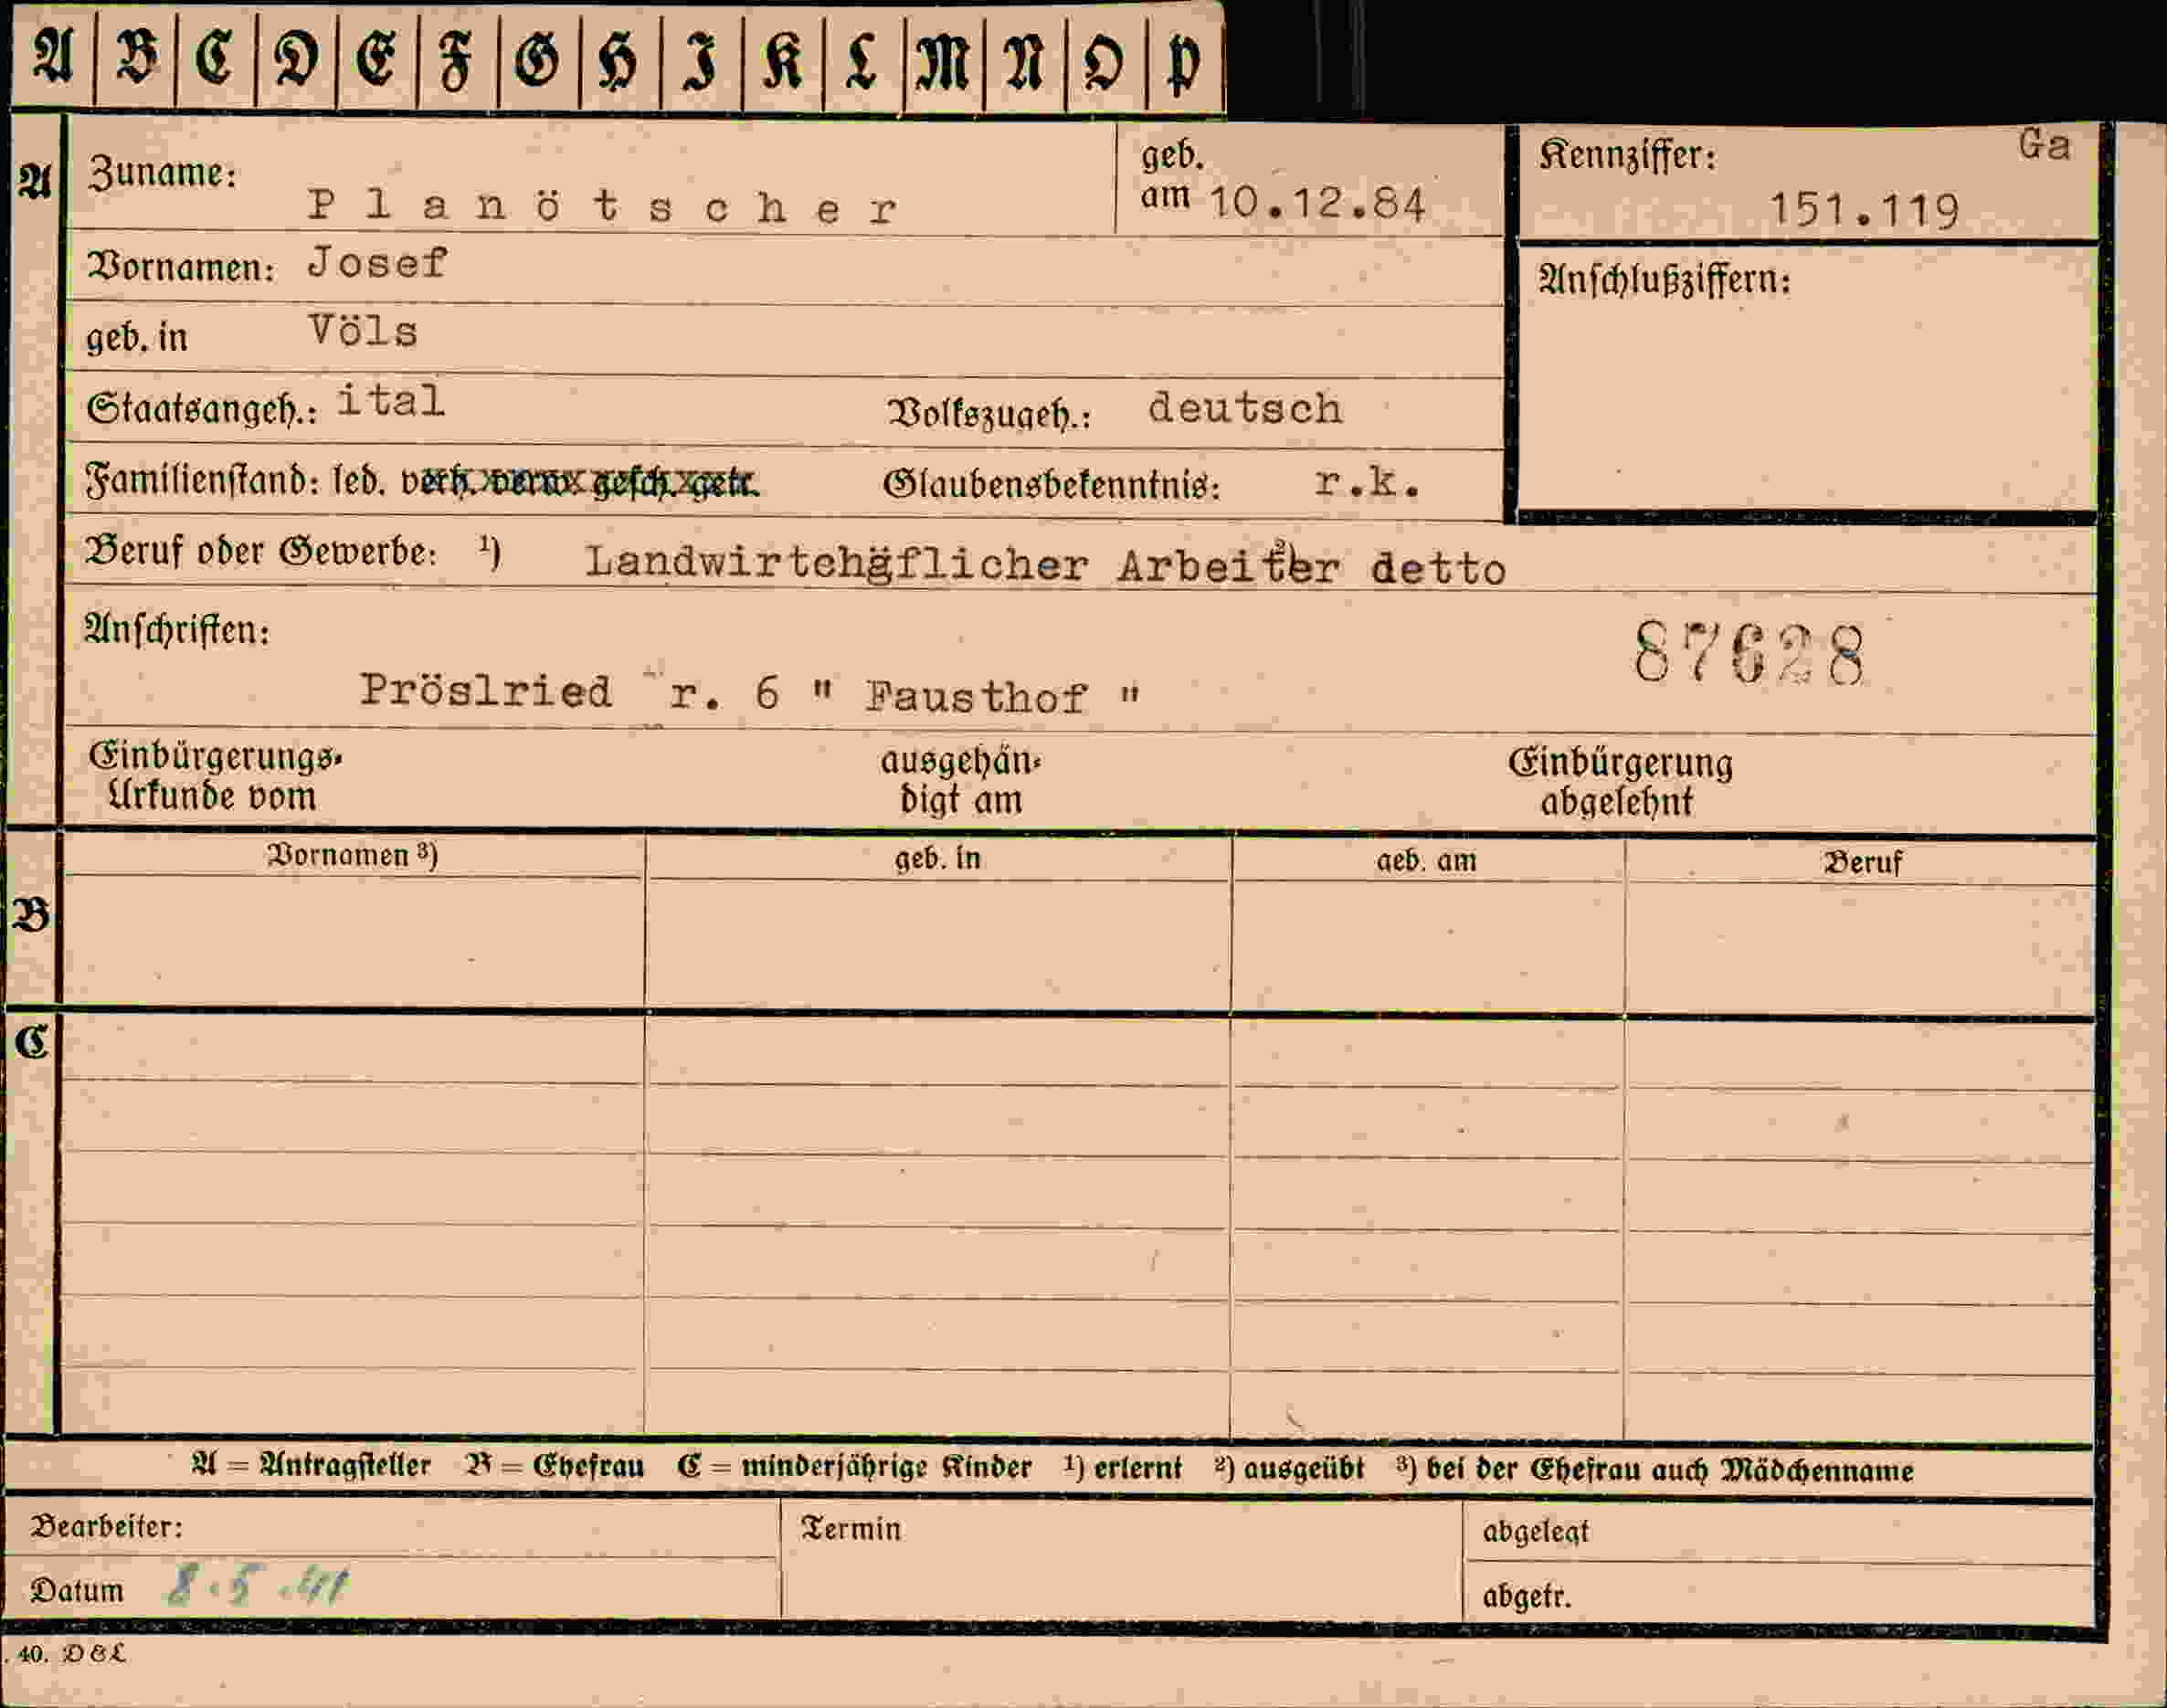 A B C D E F G H I K L M N O P
A Zuname: Planötscher geb. am 10.12.84 Kennziffer: Ga 151.119
Vornamen: Josef Anschlußziffern:
geb. in Völs
Staatsangeh.: ital Volkszugeh.: deutsch
Familienstand: led. verh. verw. gesch. getr. Glaubensbekenntnis: r.k.
Beruf oder Gewerbe: ¹) Landwirtchäflicher Arbeiter ²) detto
Anschriften: 87628
Pröslried r. 6 " Fausthof "
Einbürgerungs- ausgehän- Einbürgerung
Urkunde vom digt am abgelehnt
Vornamen ³) geb. in geb. am Beruf
B
C
A = Antragsteller B = Ehefrau C = minderjährige Kinder ¹) erlernt ²) ausgeübt ³) bei der Ehefrau auch Mädchenname
Bearbeiter: Termin abgelegt
Datum 8.5.41 abgetr.
40. D&L